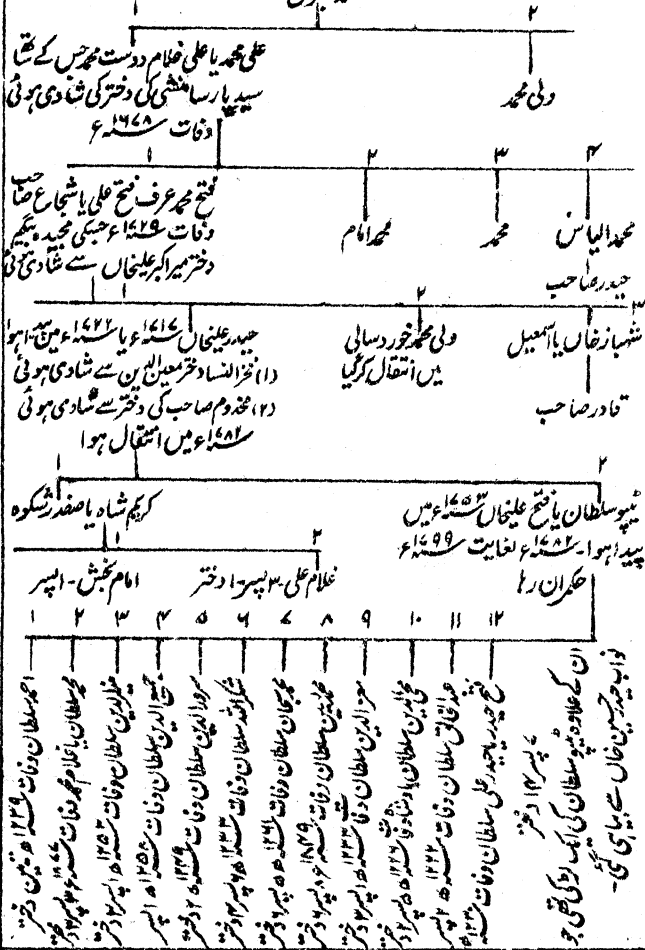 ۱ ۲
علی محمد یا علی غلام دوست محمد جس کے ساتھ
سید پارسا منشی کی دختر کی شادی ہوئی
وفات ۱۶۷۸ء
ولی محمد
۱ ۲ ۳ ۴
فتح محمد عرف فتح علی یا شجاع صاحب
وفات ۱۷۲۹ء جسکی مجیدہ بیگم
دختر میر اکبر علیخاں سے شادی ہوئی
محمد امام
محمد
محمد الیاس
حیدر صاحب
۱ ۲ ۳
حیدر علیخاں ۱۷۱۷ء یا ۱۷۲۲ء میں پیدا ہوا
(۱) فخر النساء دختر معین الدین سے شادی ہوئی
(۲) مخدوم صاحب کی دختر سے شادی ہوئی
۱۷۸۲ء میں انتقال ہوا
ولی محمد خورد سالی
میں انتقال کر گیا
شہباز خاں یا اسمعیل
قادر صاحب
۱ ۲
کریم شاہ یا صفدر شکوہ
ٹیپو سلطان یا فتح علیخاں ۱۷۵۳ء میں
پیدا ہوا۔ ۱۷۸۲ء لغایت ۱۷۹۹ء
حکمران رہا
۱ ۲
امام بخش - ا پسر
غلام علی - ۳ پسر - ۱ دختر
۱ ۲ ۳ ۴ ۵ ۶ ۷ ۸ ۹ ۱۰ ۱۱ ۱۲
احمد سلطان وفات ۱۲۳۹ھ تین دختر
محمد سلطان یا غلام محمد وفات
منیر الدین سلطان وفات ۱۲۵۳ھ ا پسر ۲ دختر
جمیع الدین سلطان وفات ۱۲۵۸ھ ا پسر
سرور الدین سلطان وفات ۱۲۴۹ھ ۲ دختر
شکر اللہ سلطان وفات ۱۲۳۳ھ
محمد سبحان سلطان وفات ۱۲۶۱ھ ۵ پسر ۶ دختر
محمد یٰسین سلطان وفات
معز الدین سلطان وفات ۱۲۳۴ھ ا پسر ۲ دختر
محی الدین سلطان
عبد الخالق سلطان وفات ۱۲۲۲ھ ۲ پسر
فتح حیدر یا حیدر علی سلطان وفات
۷ پسر ۱۴ دختر
ان کے علاوہ ٹیپو سلطان کی ایک لڑکی تھی جو
نواب حیدر حسین خاں سے بیاہی گئی۔